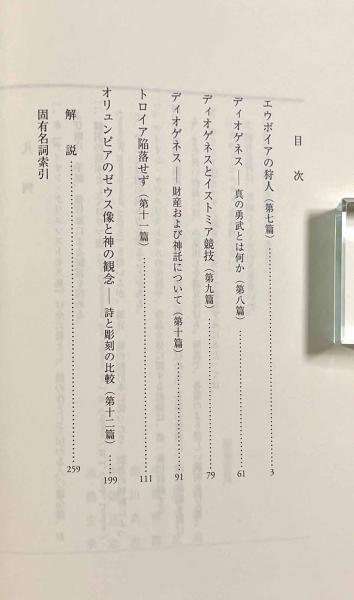 目次
エウボイアの狩人（第七篇）……………3
ディオゲネス――真の勇武とは何か（第八篇）……………61
ディオゲネスとイストミア競技（第九篇）……………79
ディオゲネス――財産および神託について（第十篇）……………91
トロイア陥落せず（第十一篇）……………111
オリュンピアのゼウス像と神の観念――詩と彫刻の比較（第十二篇）……………199
解説……………259
固有名詞索引